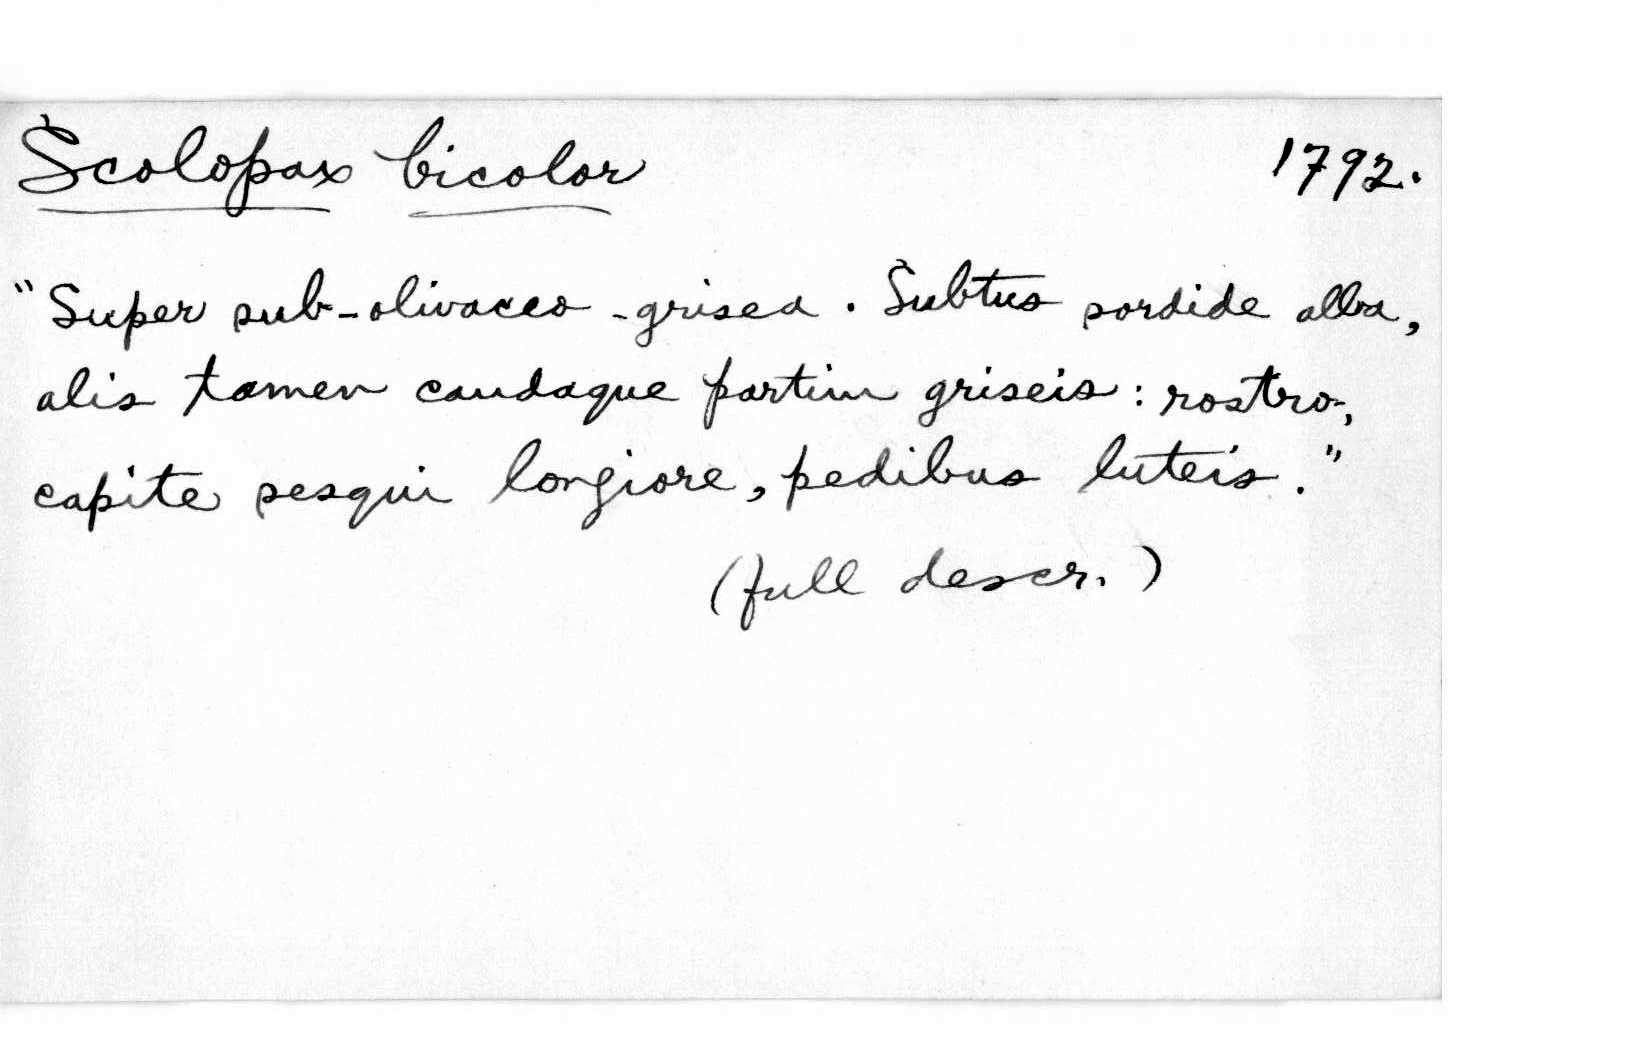 Scolopax bicolor 1792.
"Super sub-olivaceo-grisea. Subtus sordide alba,
alis tamen caudaque partim griseis: rostro,
capite sesqui longiore, pedibus luteis."
(full descr.)